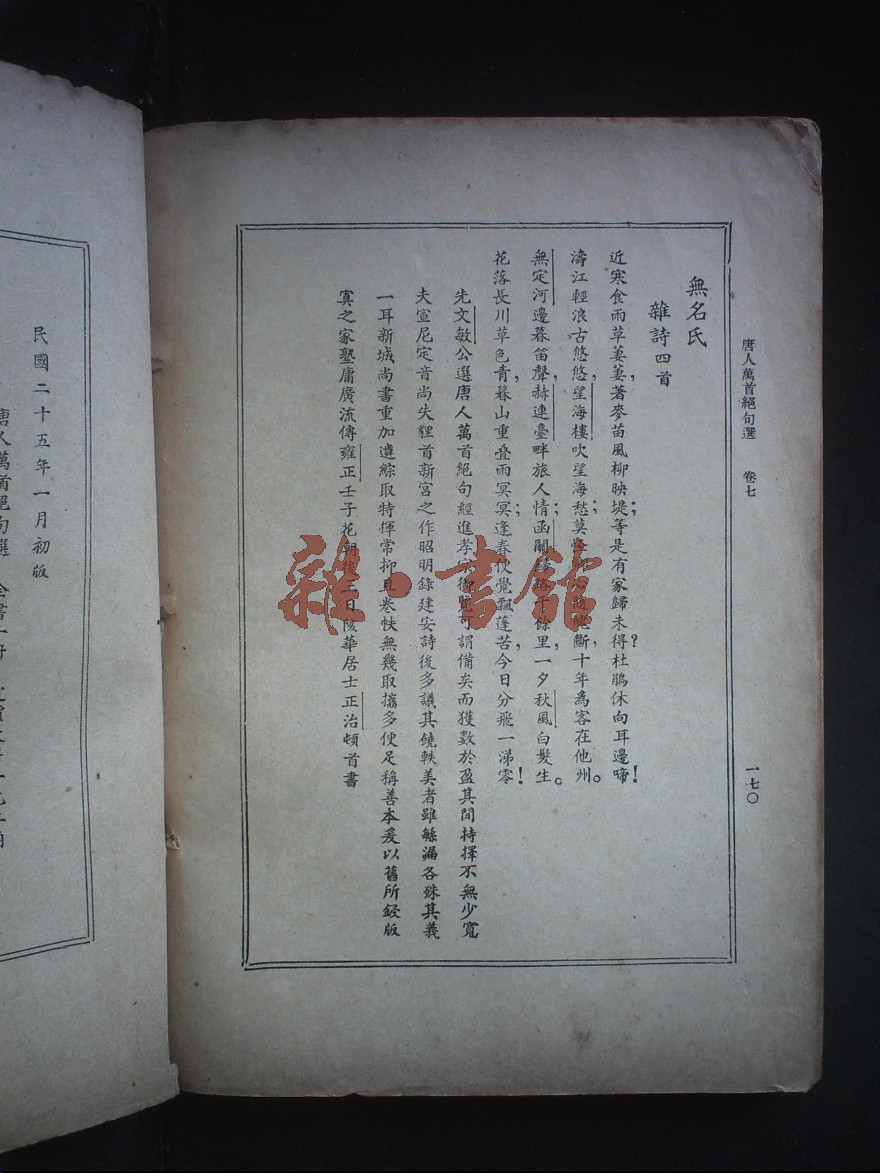 唐人萬首絕句選 卷七 一七〇
無名氏
雜詩四首
近寒食雨草萋萋，著麥苗風柳映堤；等是有家歸未得？杜鵑休向耳邊啼！
濤江輕浪古悠悠，望海樓吹望海愁；莫怪鄉心隨魄斷，十年為客在他州。
無定河邊暮笛聲，赫連臺畔旅人情；函關歸路千餘里，一夕秋風白髮生。
花落長川草色青，暮山重疊雨冥冥；逢春便覺飄蓬苦，今日分飛一涕零！
先文敏公選唐人萬首絕句經進孝宗御覽可謂備矣而獲數於盈其間持擇不無少寬
夫宣尼定音尚失貍首新宮之作昭明錄建安詩後多議其饒軼美者雖緐漏各殊其義
一耳新城尚書重加遴綜取特揮常抑且卷帙無幾取攜多便足稱善本爰以舊所鋟版
寘之家塾庸廣流傳雍正壬子花朝後三日陔華居士正治頓首書
民國二十五年一月初版
唐人萬首絕句選 全書一冊
雜·書館